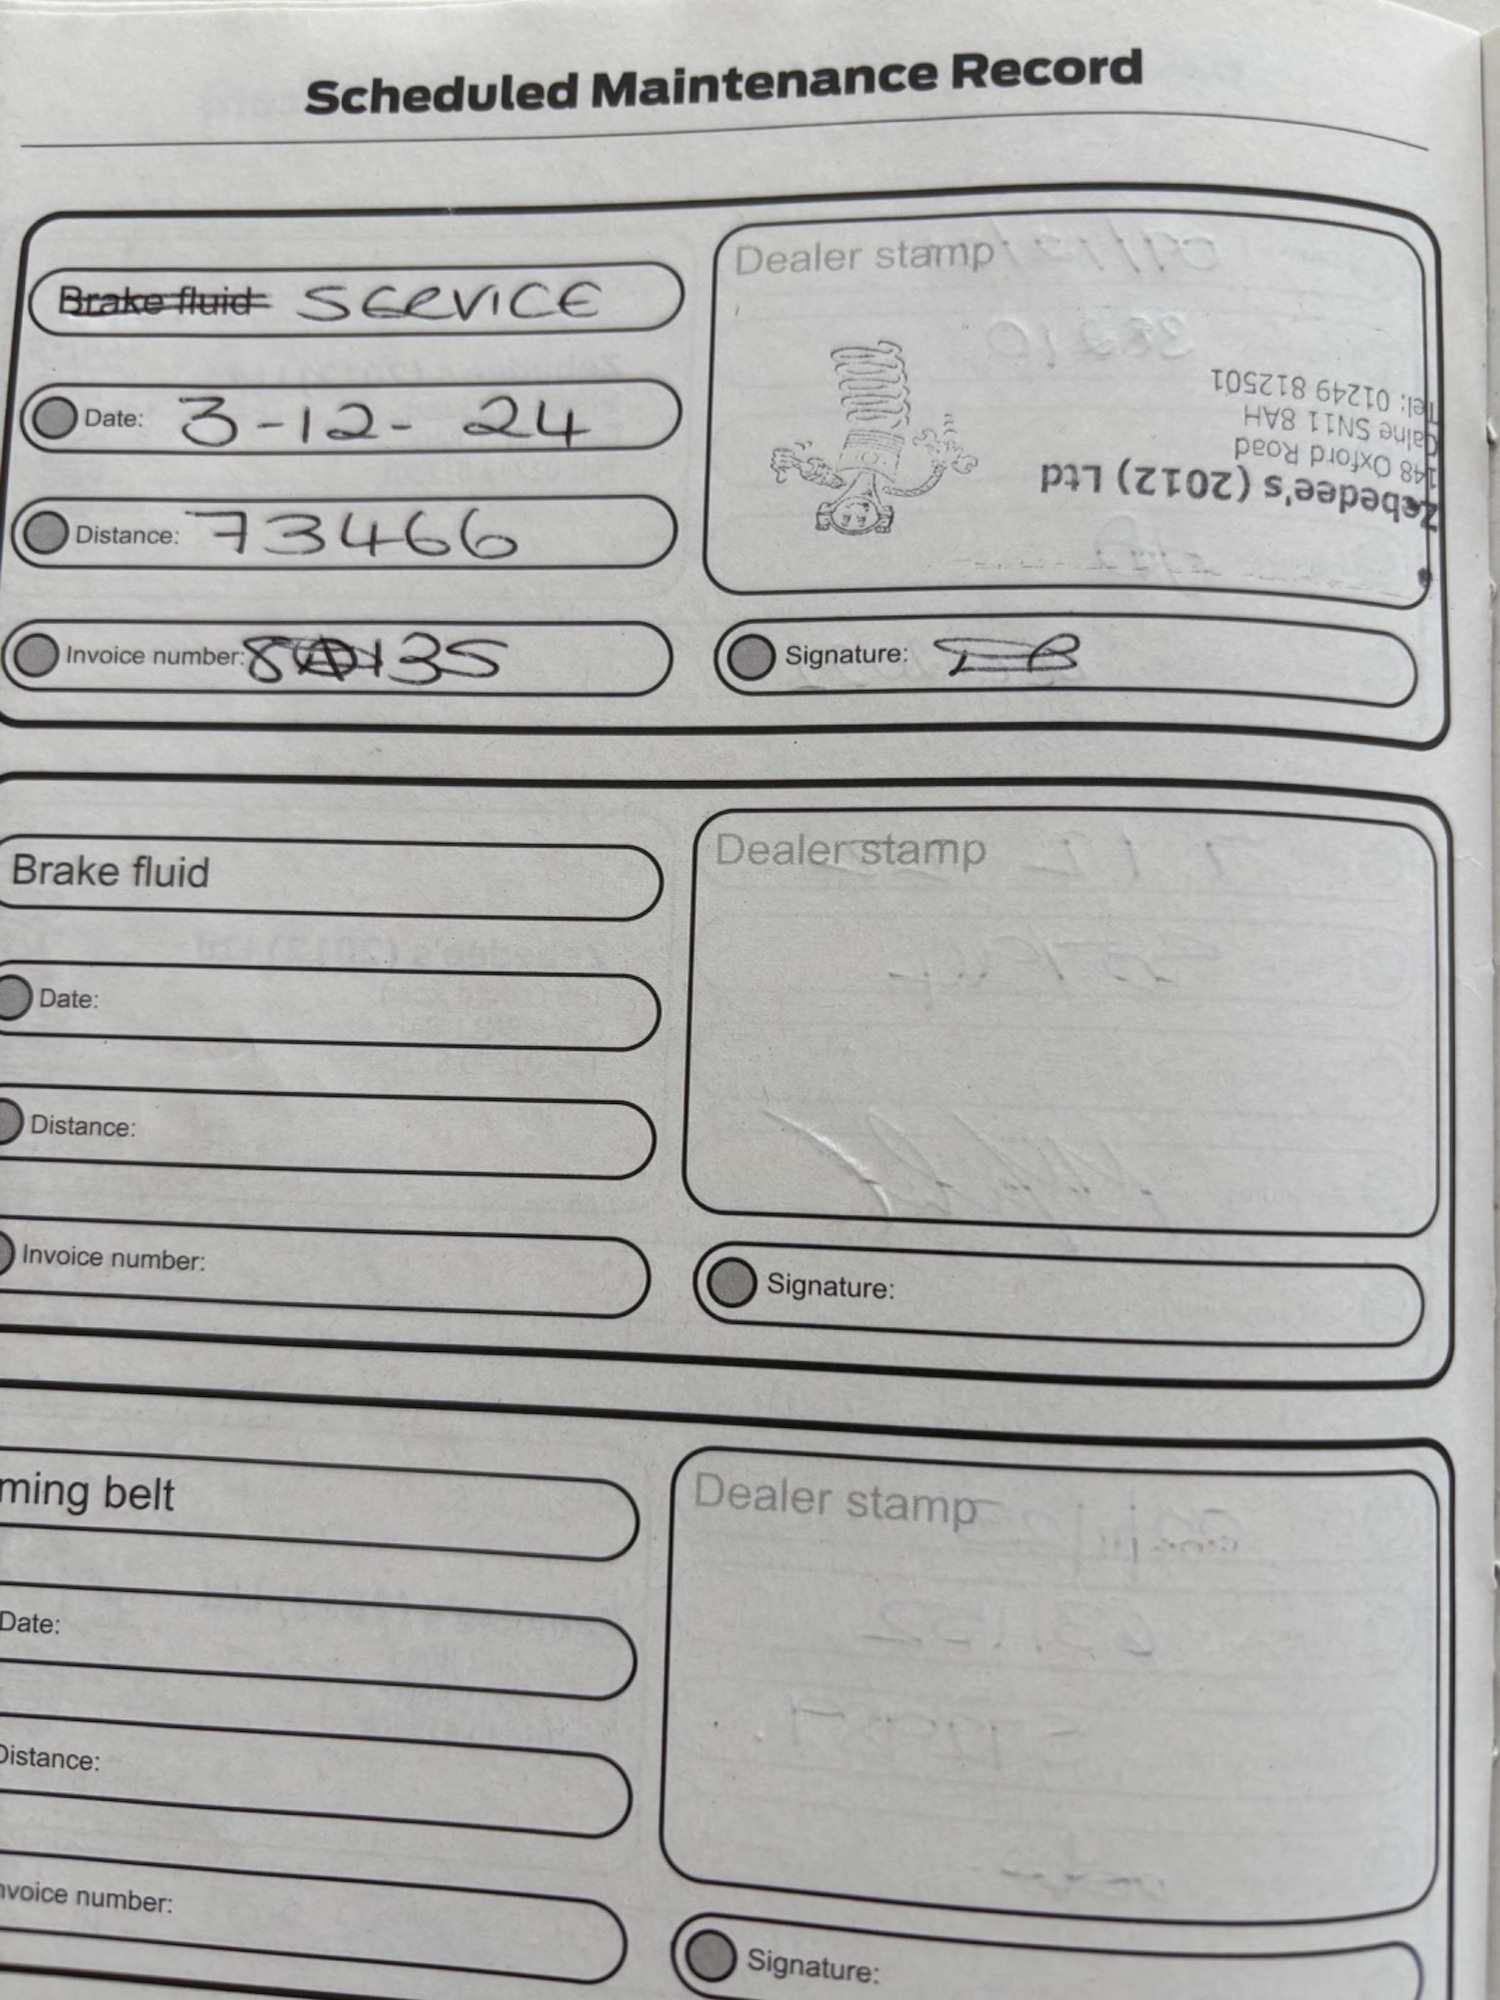 Scheduled Maintenance Record
Brake fluid SERVICE
Date: 3-12-24
Distance: 73466
Invoice number: 135
Dealer stamp
Zebedee's (2012) Ltd
148 Oxford Road
Calne SN11 8AH
Tel: 01249 812501
Signature:
Brake fluid
Date:
Distance:
Invoice number:
Dealer stamp
Signature:
ming belt
Date:
Distance:
nvoice number:
Dealer stamp
Signature: